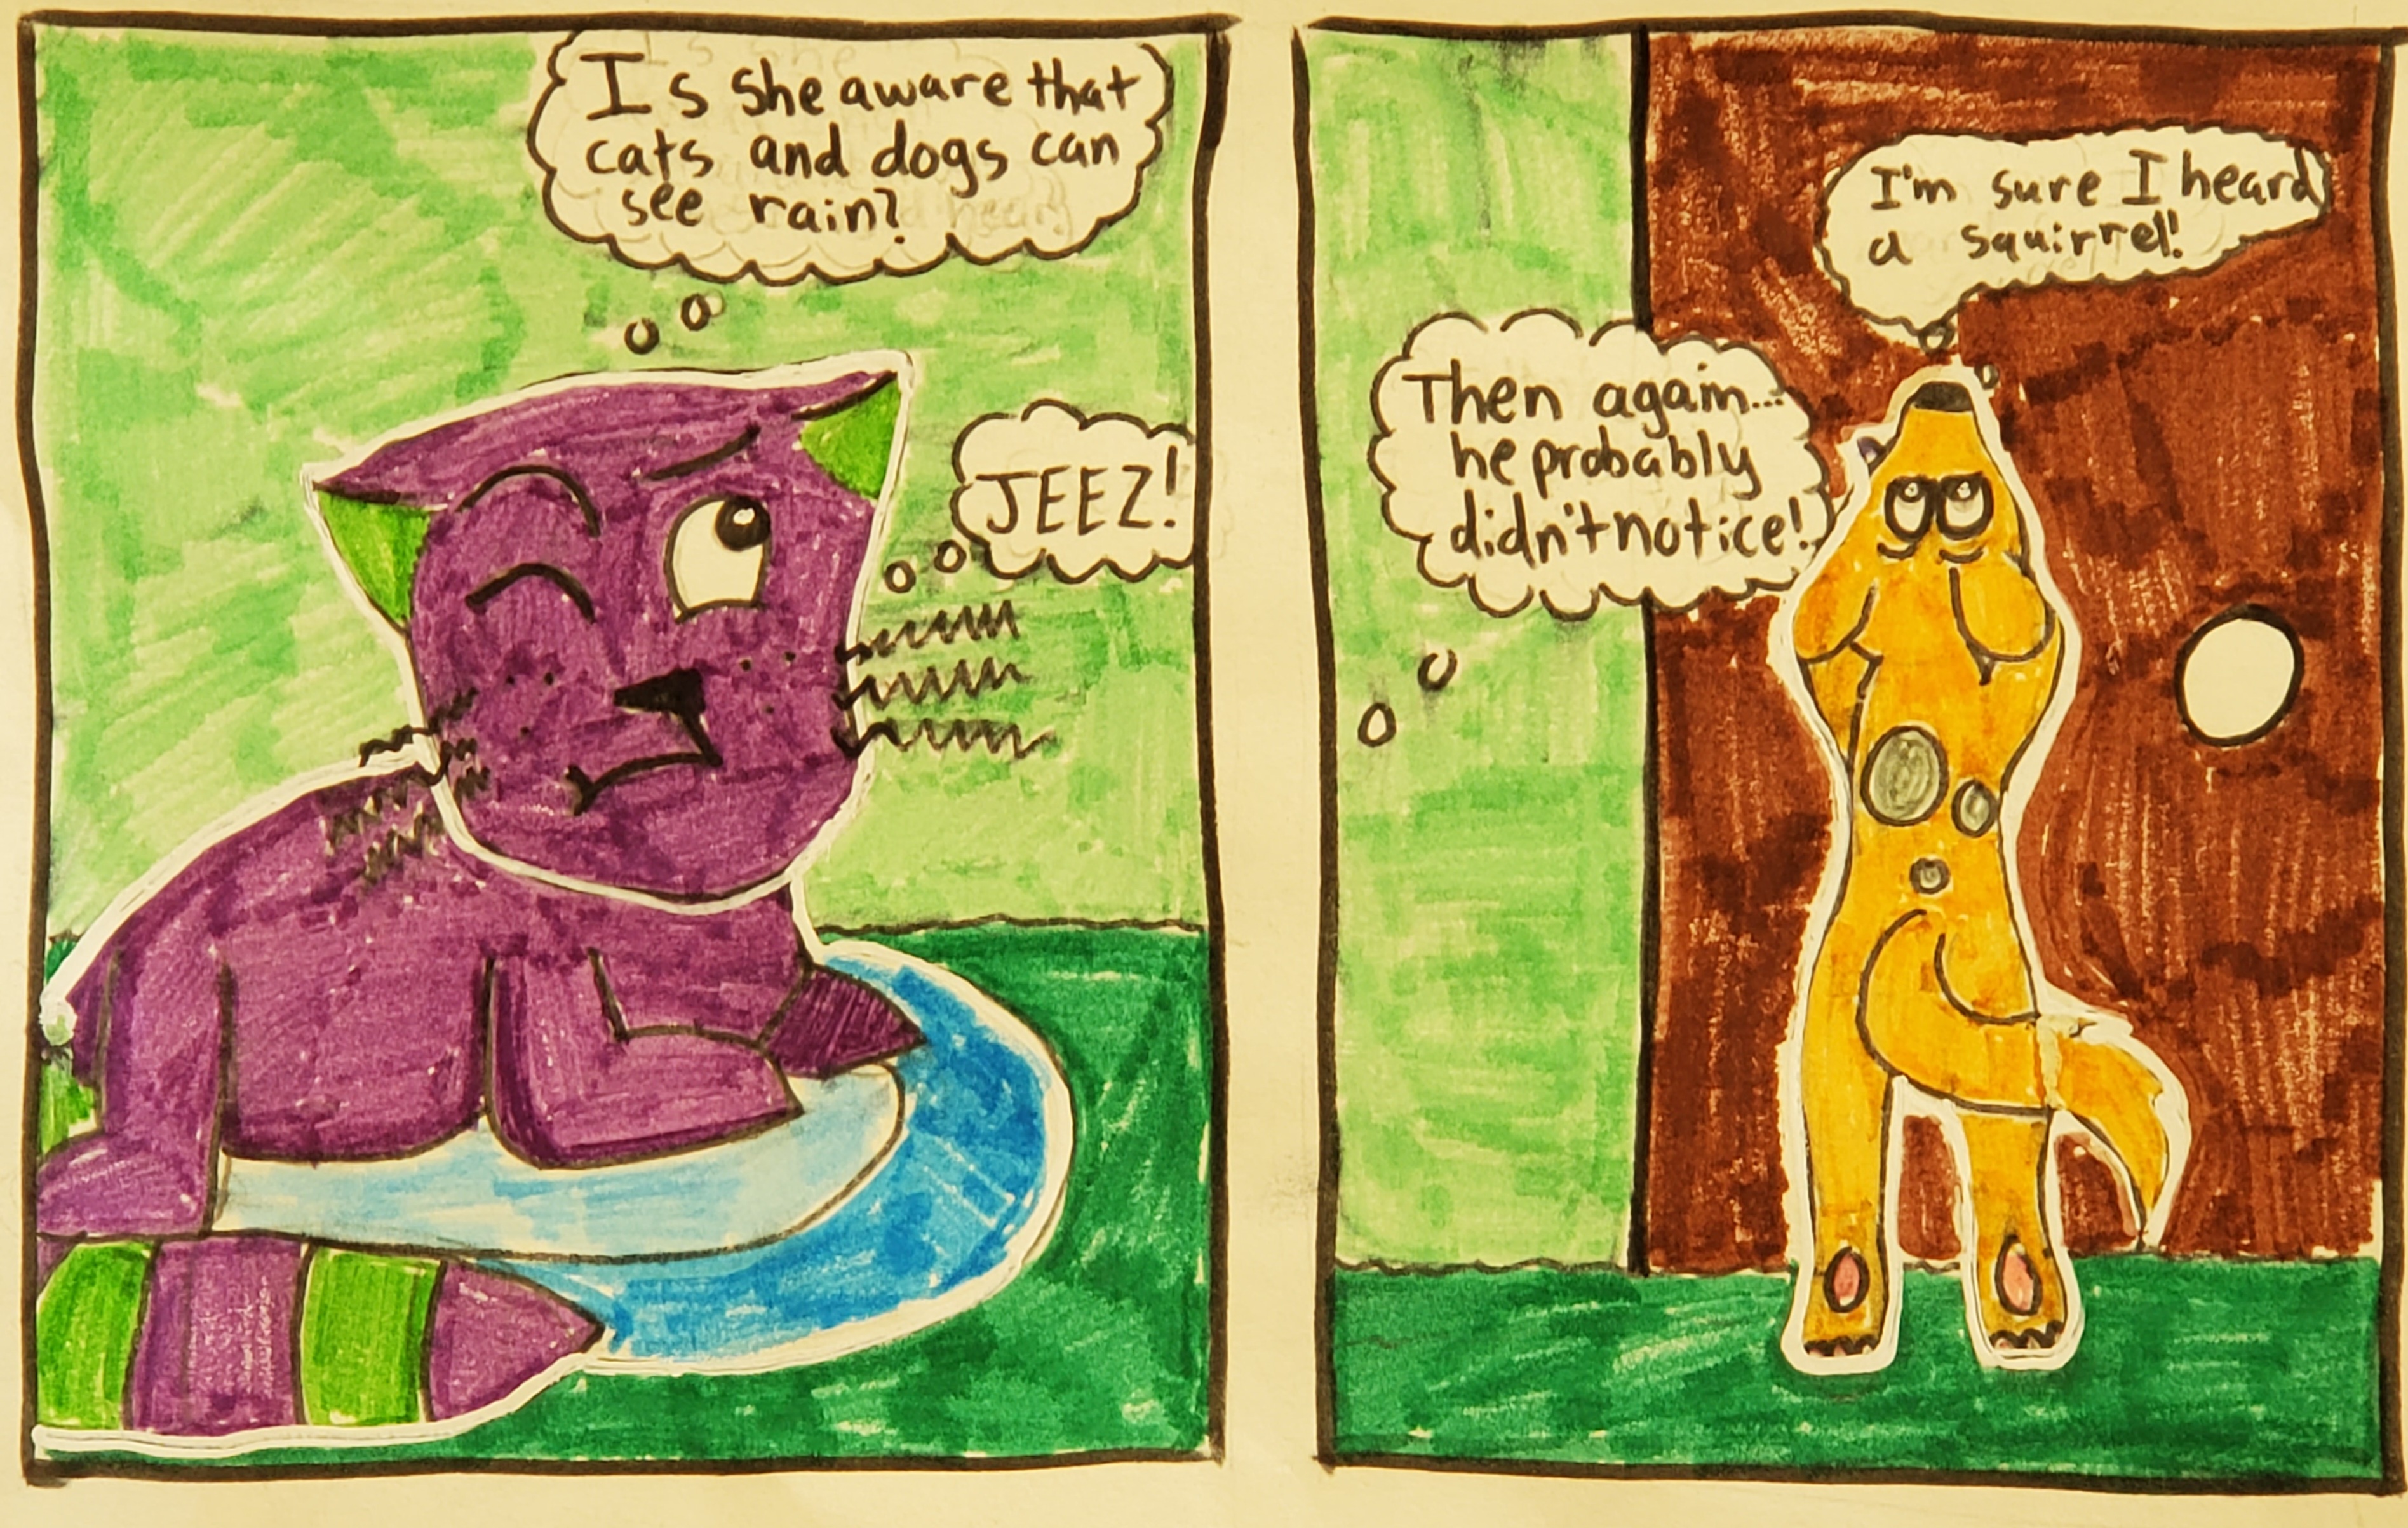 Is she aware that
cats and dogs can
see rain?
JEEZ!
I'm sure I heard
a squirrel!
Then again...
he probably
didn't notice!